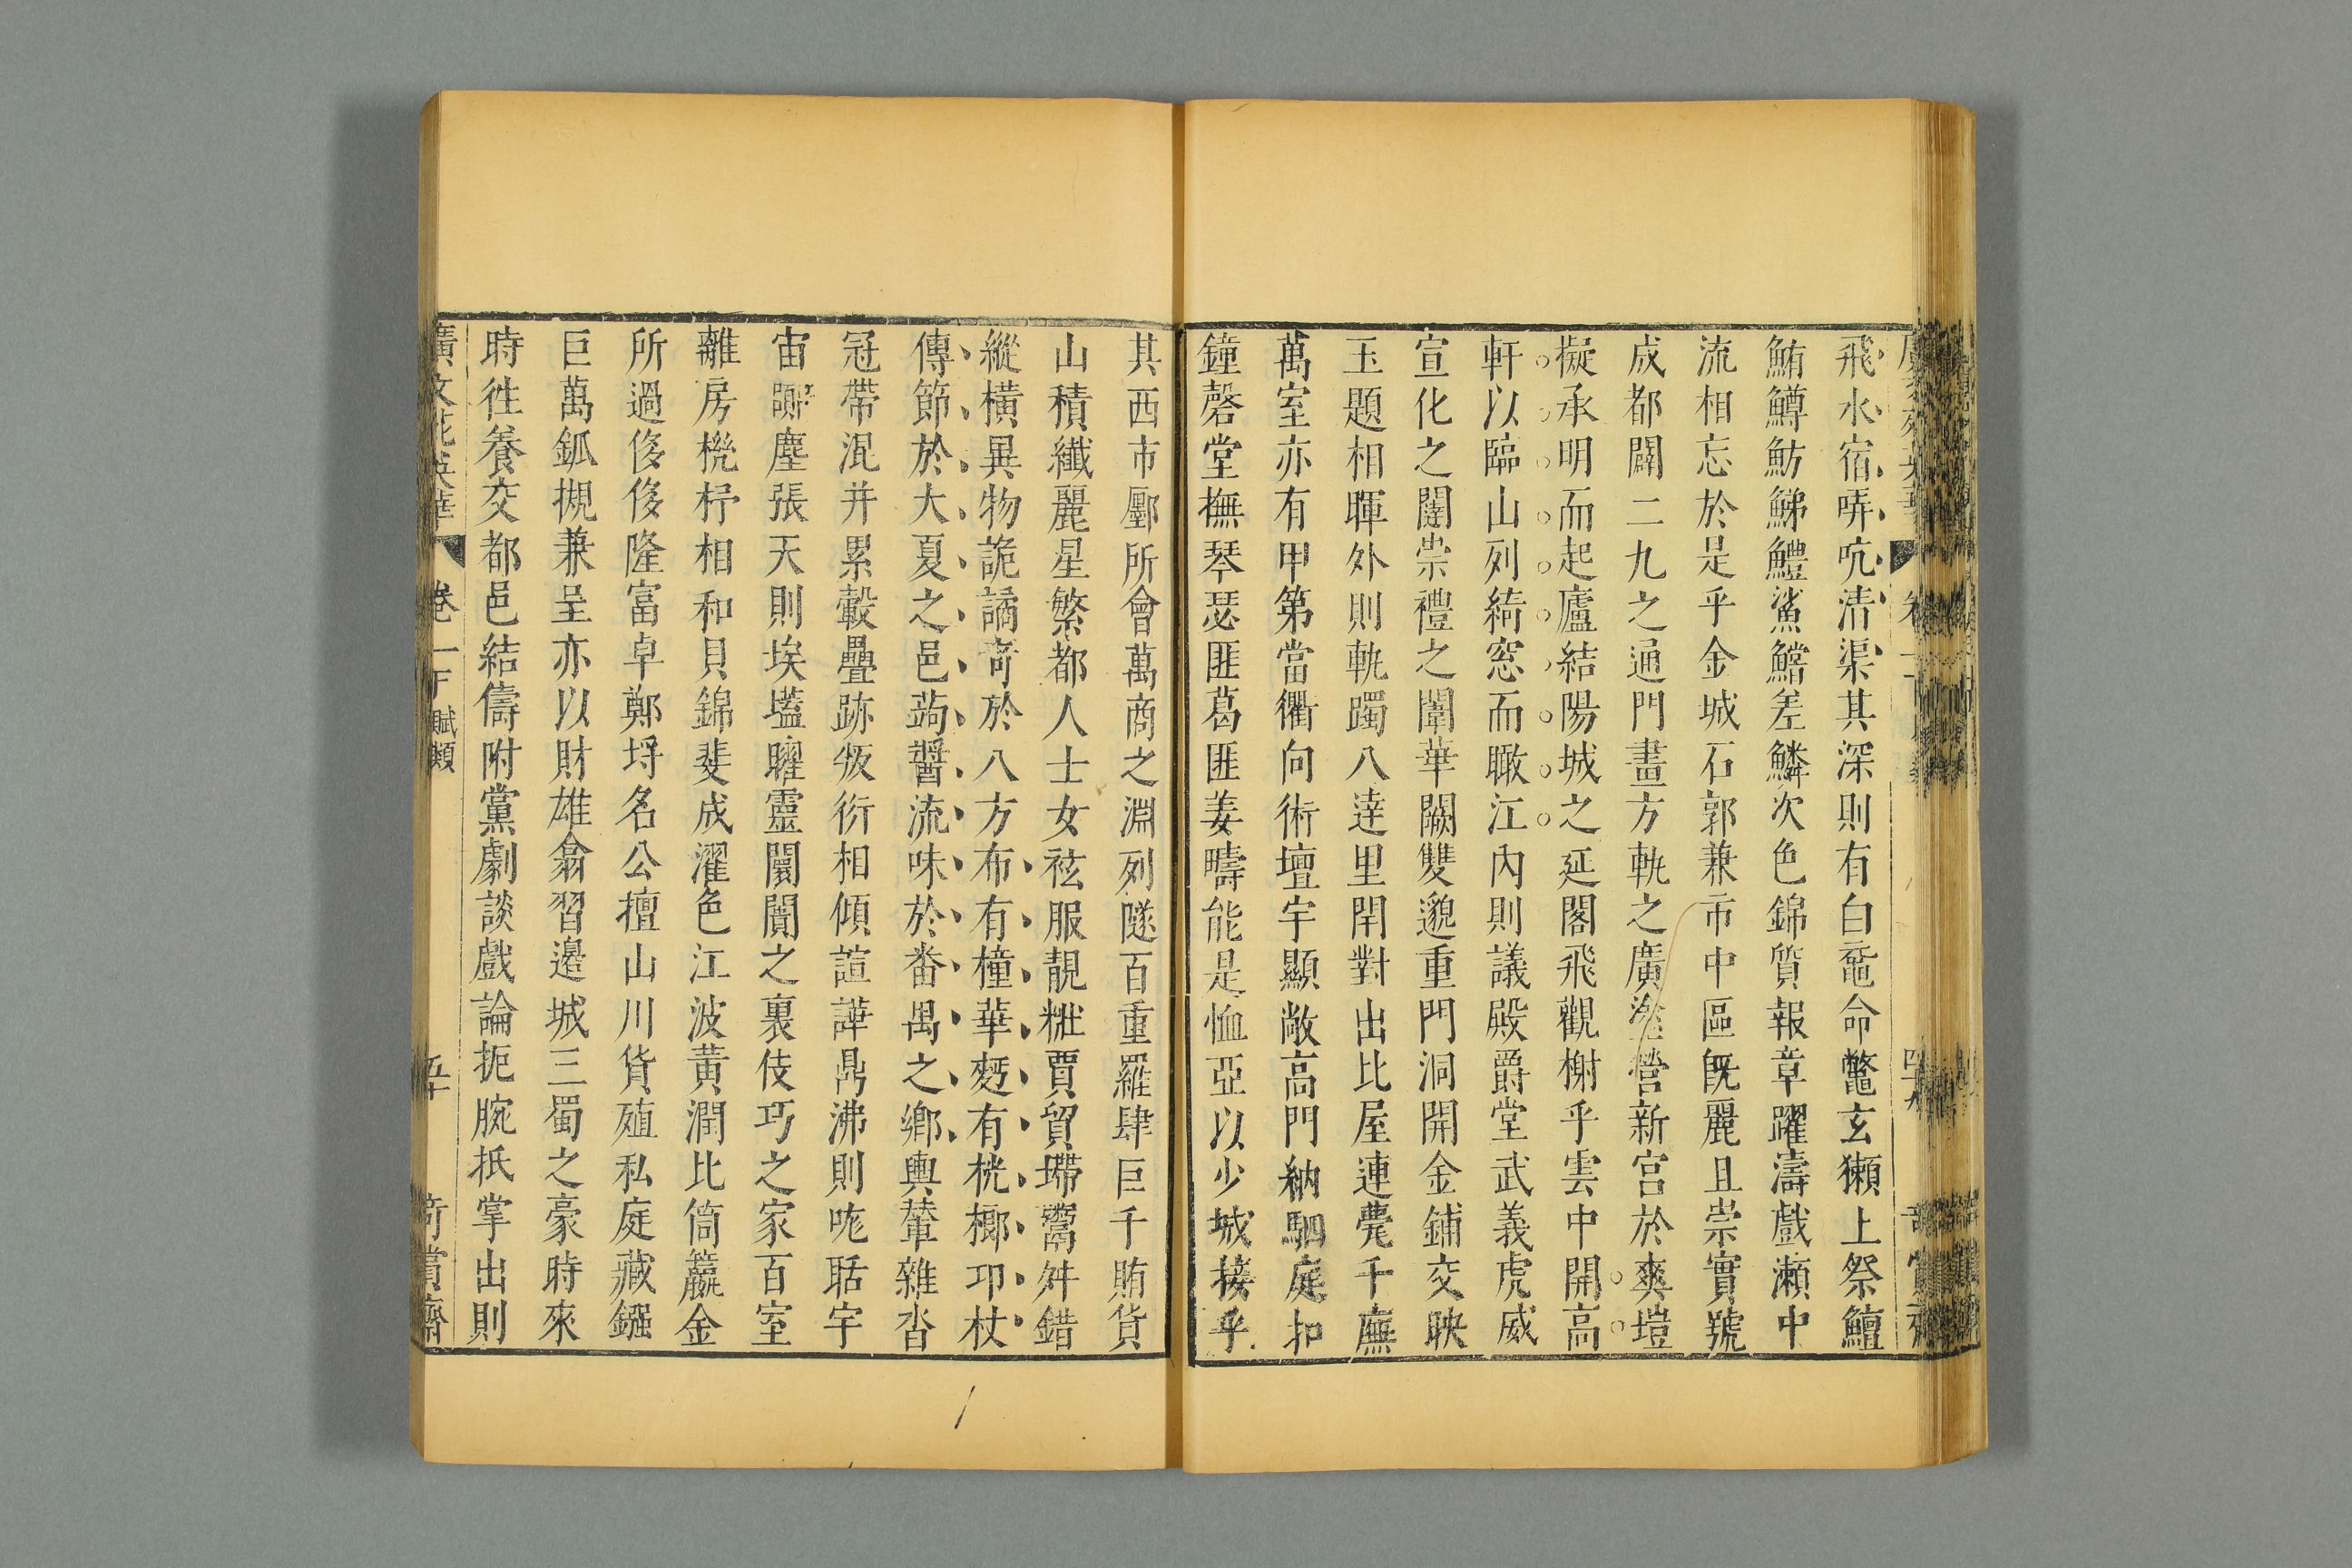 飛水宿哢吭清渠其深則有白黿命鼈玄獺上祭鱣
鮪鱒魴鮷鱧鯊鱨差鱗次色錦質報章躍濤戲瀨中
流相忘於是乎金城石郭兼帀中區旣麗且崇實號
成都闢二九之通門畫方軌之廣塗營新宮於爽塏
擬承明而起廬結陽城之延閣飛觀榭乎雲中開高
軒以臨山列綺窓而瞰江內則議殿爵堂武義虎威
宣化之闥崇禮之闈華闕雙邈重門洞開金鋪交映
玉題相暉外則軌躅八達里閈對出比屋連甍千廡
萬室亦有甲第當衢向術壇宇顯敞高門納駟庭扣
鐘磬堂撫琴瑟匪葛匪姜疇能是恤亞以少城接乎
其西市廛所會萬商之淵列隧百重羅肆巨千賄貨
山積纖麗星繁都人士女袨服靚粧賈貿墆鬻舛錯
縱橫異物詭譎奇於八方布有橦華麪有桄榔卭杖
傳節於大夏之邑蒟醬流味於番禺之鄉輿輦雜沓
冠帶混并累轂疊跡叛衍相傾諠譁鼎沸則哤聒宇
宙囂塵張天則埃壒曜靈闤闠之裏伎巧之家百室
離房機杼相和貝錦斐成濯色江波黃潤比筒籝金
所過侈侈隆富卓鄭埒名公擅山川貨殖私庭藏鏹
巨萬釽摫兼呈亦以財雄翕習邊城三蜀之豪時來
時徃養交都邑結儔附黨劇談戲論扼腕抵掌出則
廣文苑英華 卷一下 賦類 五十 奇賞齋